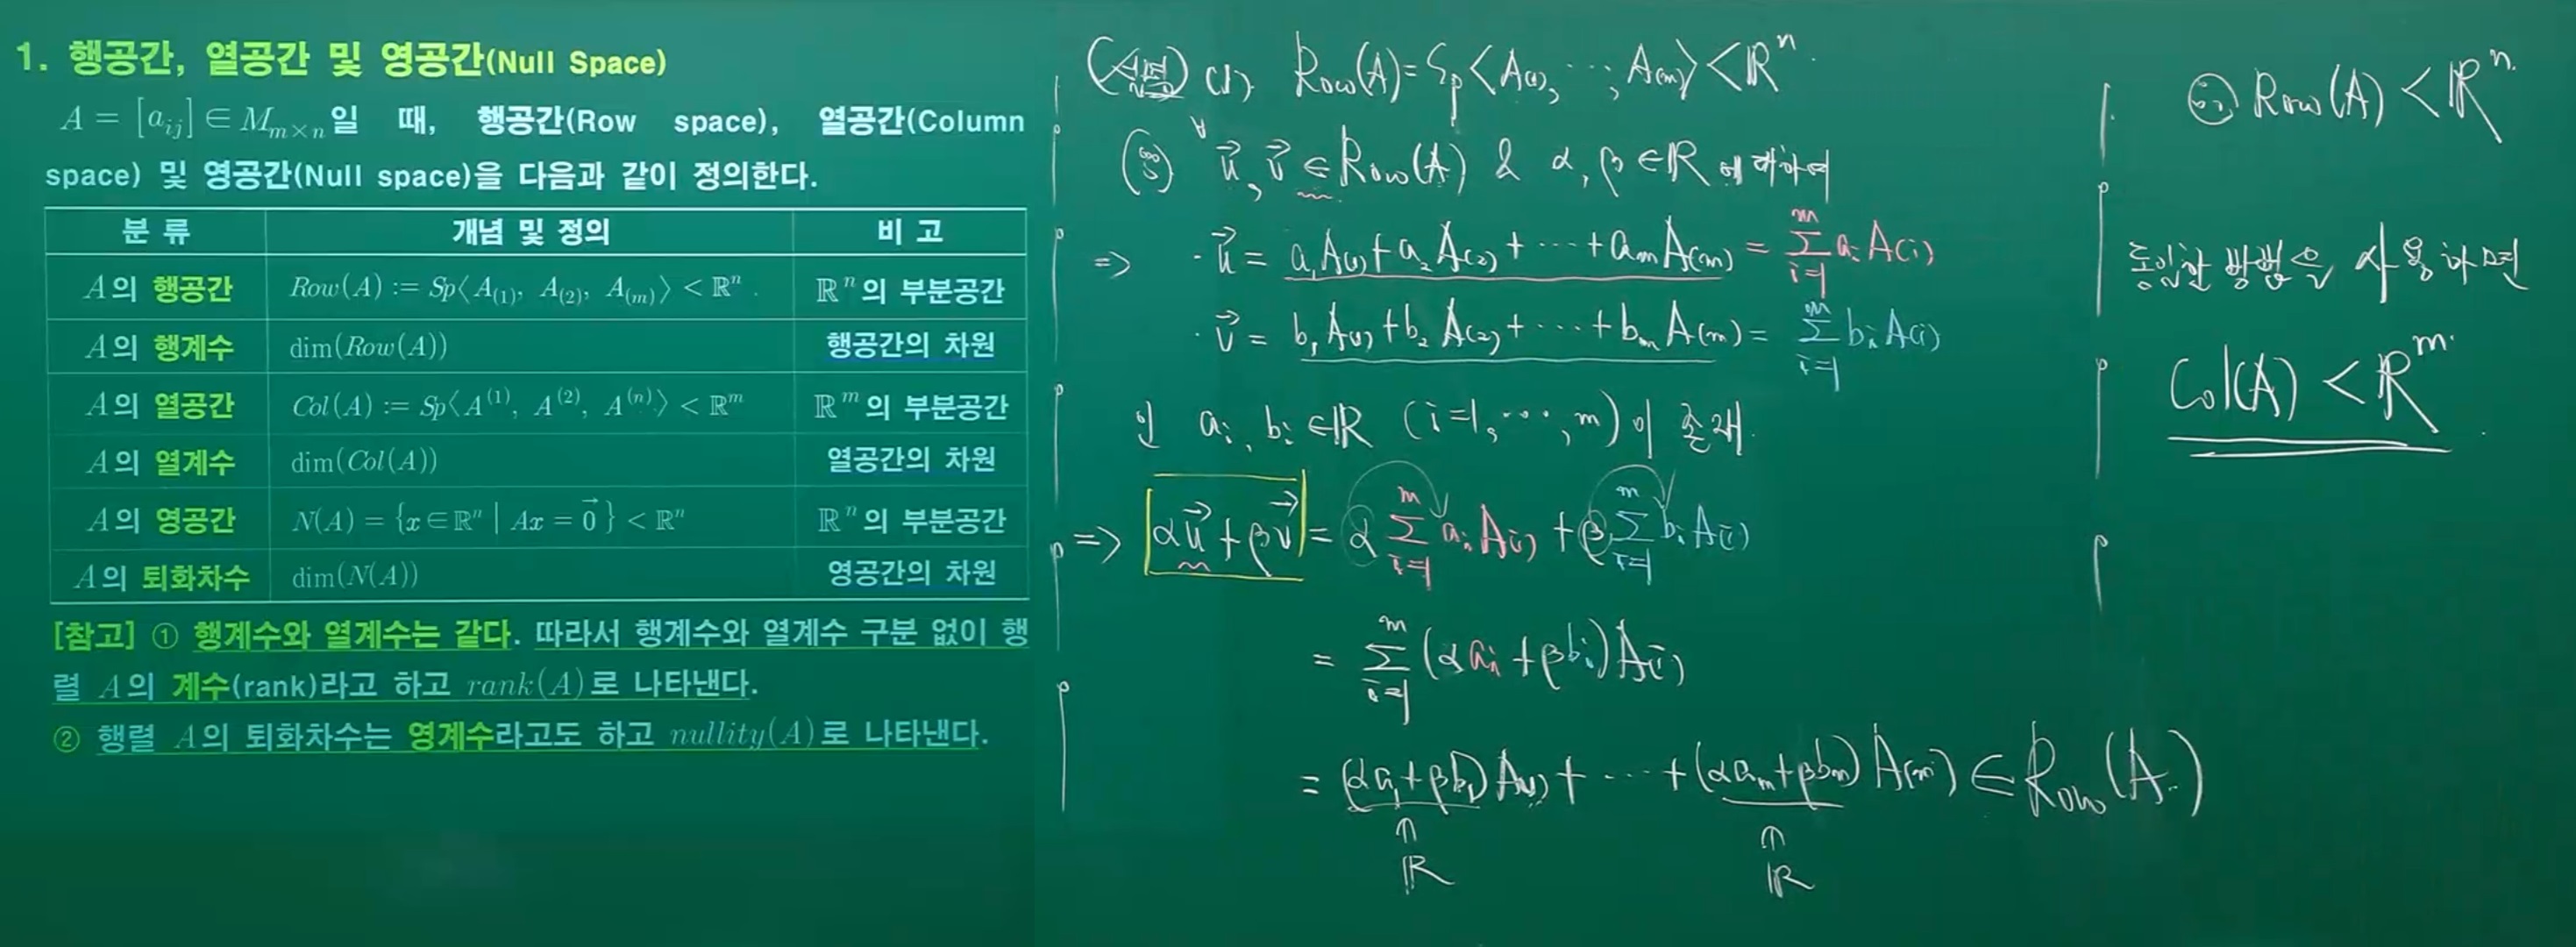 1. 행공간, 열공간 및 영공간(Null Space)
A = [a_{ij}] ∈ M_{m×n}일 때, 행공간(Row space), 열공간(Column
space) 및 영공간(Null space)을 다음과 같이 정의한다.
분 류 개념 및 정의 비 고
A의 행공간 Row(A) := Sp⟨A_{(1)}, A_{(2)}, A_{(m)}⟩ < ℝ^n . ℝ^n의 부분공간
A의 행계수 dim(Row(A)) 행공간의 차원
A의 열공간 Col(A) := Sp⟨A^{(1)}, A^{(2)}, A^{(n)}⟩ < ℝ^m ℝ^m의 부분공간
A의 열계수 dim(Col(A)) 열공간의 차원
A의 영공간 N(A) = {x∈ℝ^n | Ax = \vec{0}} < ℝ^n ℝ^n의 부분공간
A의 퇴화차수 dim(N(A)) 영공간의 차원
[참고] ① 행계수와 열계수는 같다. 따라서 행계수와 열계수 구분 없이 행
렬 A의 계수(rank)라고 하고 rank(A)로 나타낸다.
② 행렬 A의 퇴화차수는 영계수라고도 하고 nullity(A)로 나타낸다.
(설명) (1). Row(A) = Sp⟨A_{(1)}, ⋯, A_{(m)}⟩ < ℝ^n.
(∵) ∀ \vec{u}, \vec{v} ∈ Row(A) & α, β ∈ ℝ 에 대하여
⇒ · \vec{u} = a_1A_{(1)} + a_2A_{(2)} + ⋯ + a_mA_{(m)} = \sum_{i=1}^{m} a_i A_{(i)}
· \vec{v} = b_1A_{(1)} + b_2A_{(2)} + ⋯ + b_mA_{(m)} = \sum_{i=1}^{m} b_i A_{(i)}
인 a_i, b_i ∈ ℝ (i=1, ⋯, m)이 존재.
⇒ α\vec{u} + β\vec{v} = α \sum_{i=1}^{m} a_i A_{(i)} + β \sum_{i=1}^{m} b_i A_{(i)}
= \sum_{i=1}^{m} (αa_i + βb_i) A_{(i)}
= (αa_1 + βb_1) A_{(1)} + ⋯ + (αa_m + βb_m) A_{(m)} ∈ Row(A).
∩ ∩
ℝ ℝ
∴ Row(A) < ℝ^n.
동일한 방법을 사용하면
Col(A) < ℝ^m.